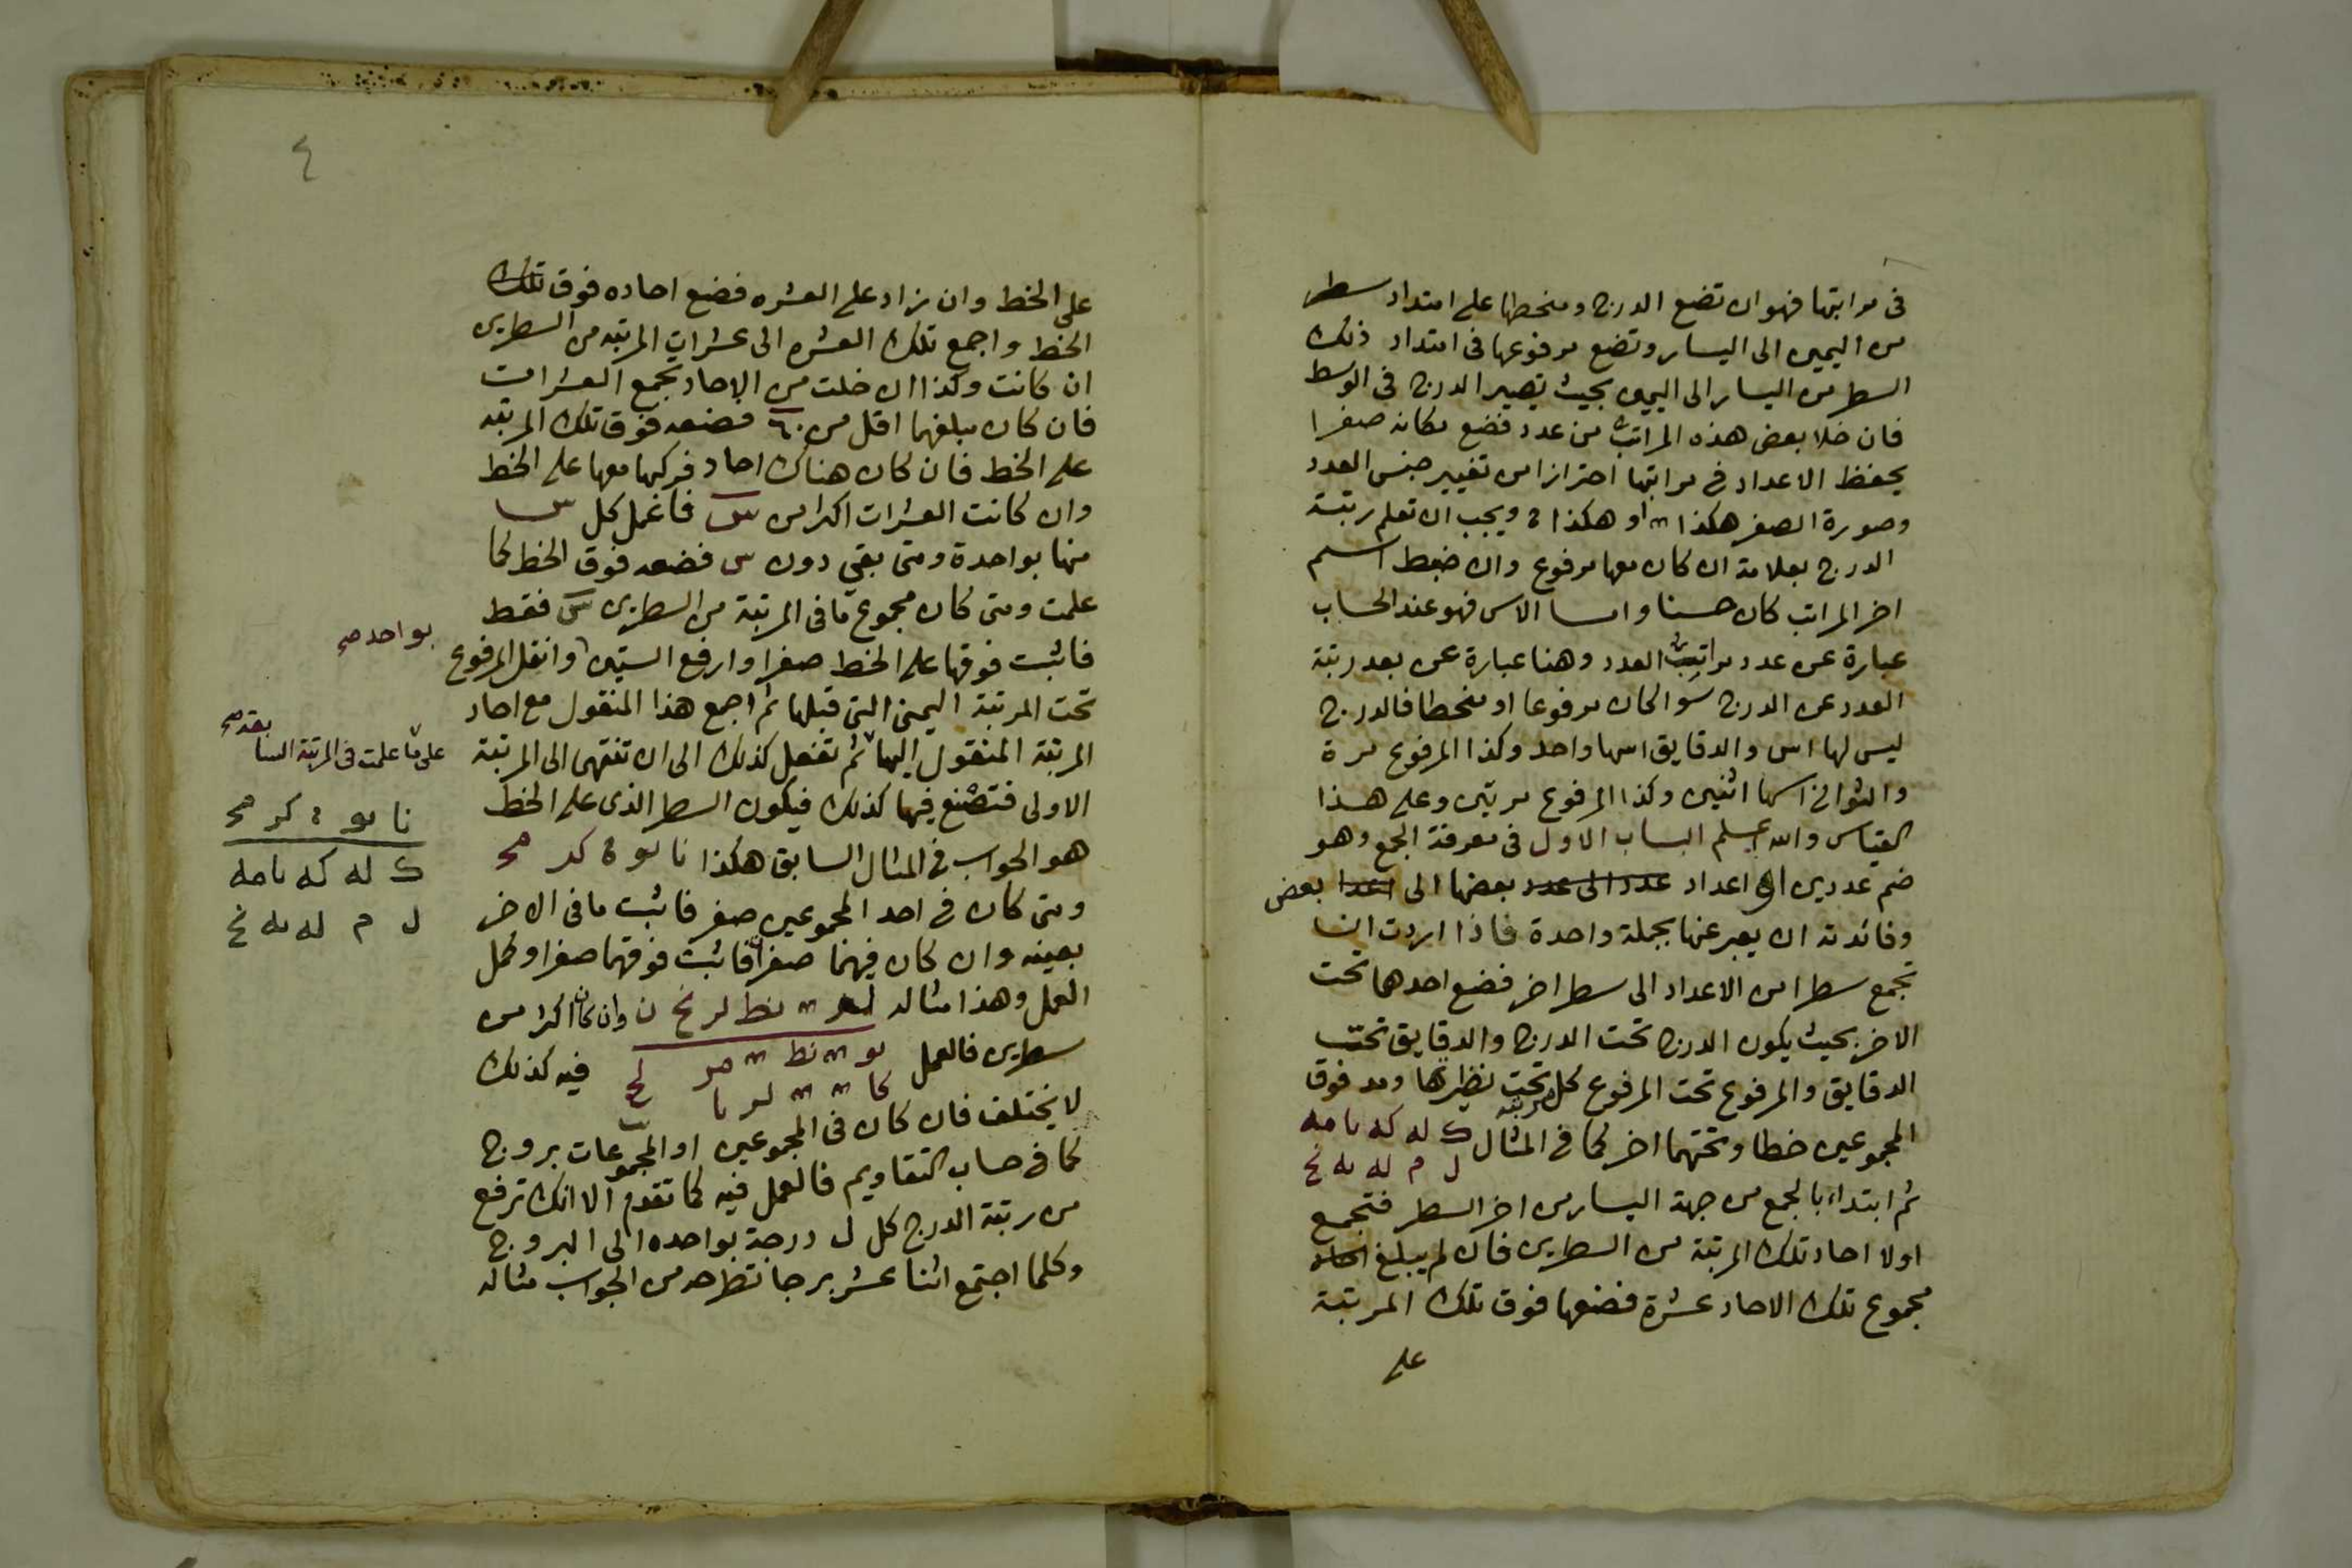 فى مراتبها فهو ان تضع الدرج ومنحطها على امتداد سطر
من اليمين الى اليسار وتضع مرفوعها فى امتداد ذلك
السطر من اليسار الى اليمين بحيث تصير الدرج فى الوسط
فان خلا بعض هذه المراتب من عدد فضع مكانه صفرا
يحفظ الاعداد فى مراتبها احترازا من تغيير جنس العدد
وصورة الصفر هكذا او هكذا ويجب ان تعلم رتبة
الدرج بعلامة ان كان معها مرفوع وان ضبط اسم
اخر المراتب كان حسنا واما الاس فهو عند الحساب
عبارة عن عدد مراتب العدد وهنا عبارة عن بعد رتبة
العدد عن الدرج سوا كان مرفوعا او منحطا فالدرج
ليس لها اس والدقايق اسها واحد وكذا المرفوع مرة
والثوانى اسها اثنين وكذا المرفوع مرتين وعلى هذا
القياس والله اعلم الباب الاول فى معرفة الجمع وهو
ضم عددين او اعداد عدد الى عدد بعضها الى اعدا بعض
وفائدته ان يعبر عنها بجملة واحدة فاذا اردت ان
تجمع سطرا من الاعداد الى سطر اخر فضع احدهما تحت
الاخر بحيث يكون الدرج تحت الدرج والدقايق تحت
الدقايق والمرفوع تحت المرفوع كل مرتبة تحت نظيرتها ومد فوق
المجموعين خطا وتحتهما اخر كما فى المثال ك له كه نا مه
ل م له نه نح
ثم ابتداء بالجمع من جهة اليسار من اخر السطر فتجمع
اولا احاد تلك المرتبة من السطرين فان لم يبلغ احاد
مجموع تلك الاحاد عشرة فضعها فوق تلك المرتبة
على
٤
على الخط وان زاد على العشره فضع احاده فوق تلك
الخط واجمع تلك العشره الى عشرات المرتبه من السطرين
ان كانت وكذا ان خلت من الاحاد تجمع العشرات
فان كان مبلغهما اقل من ٦٠ فضعه فوق تلك المرتبه
على الخط فان كان هناك احاد فركبها معها على الخط
وان كانت العشرات اكثر من س فاعمل كل س
منها بواحدة ومتى بقى دون س فضعه فوق الخط كما
علمت ومتى كان مجموع ما فى المرتبة من السطرين س فقط
فاثبت فوقها على الخط صفرا وارفع الستين وانقل المرفوع
بواحد صح
تحت المرتبة اليمنى التى قبلها ثم اجمع هذا المنقول مع احاد
المرتبة المنقول اليها ثم تفعل كذلك الى ان تنتهى الى المرتبة
على ما علمت فى المرتبة السابقة صح
الاولى فتصنع فيها كذلك فيكون السطر الذى على الخط
هو الجواب فى المثال السابق هكذا نا يو ة كر مح
نا يو ة كر مح
ك له كه نا مه
ل م له نه نح
ومتى كان فى احد المجموعين صفر فاثبت ما فى الاخر
بعينه وان كان فيهما صفران فاثبت فوقهما صفرا وكمل
العمل وهذا مثاله نط لر نح ن وان كان اكثر من
سطرين فالعمل يو نط مر لح فيه كذلك
كا لر نا
لا يختلف فان كان فى المجموعين او المجموعات بروج
كما فى حساب التقاويم فالعمل فيه كما تقدم الا انك ترفع
من رتبة الدرج كل ل درجة بواحده الى البروج
وكلما اجتمع اثنا عشر برجا تطرحه من الجواب مثاله